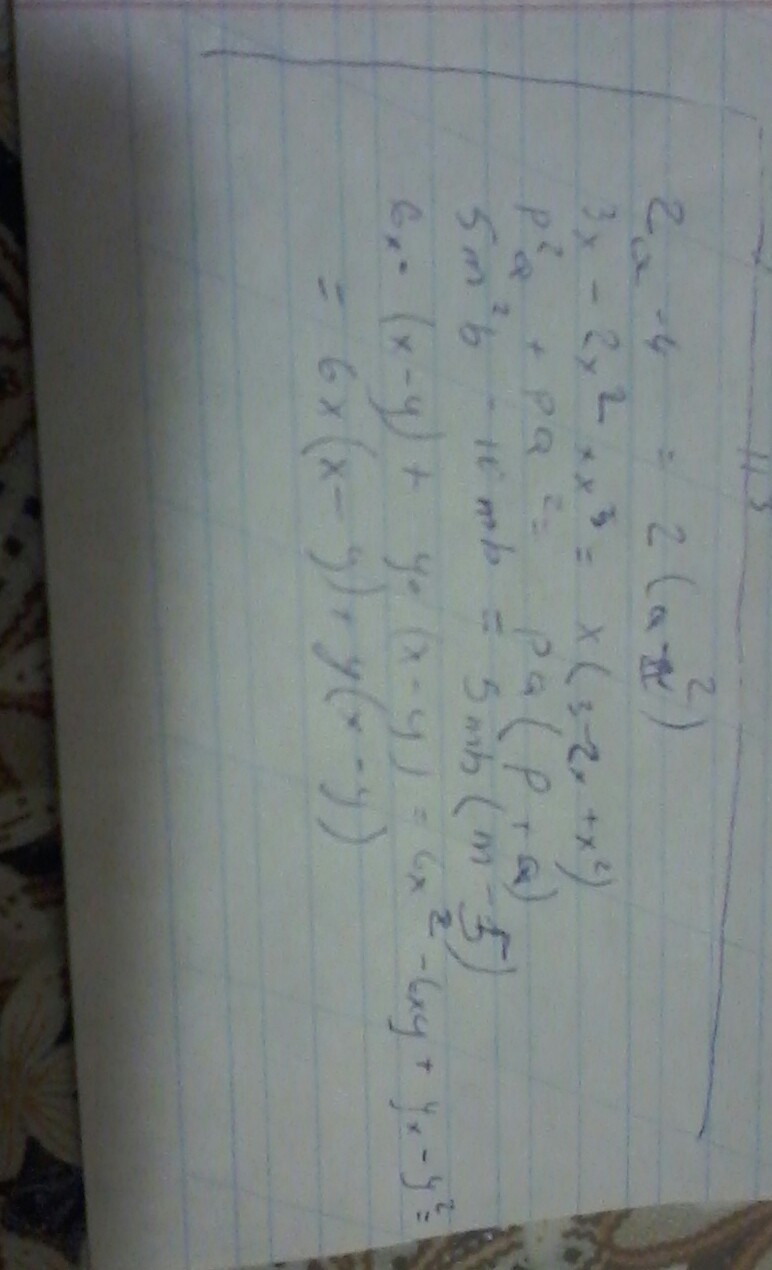 113
2a - 4 = 2(a - 2)
3x - 2x² + x³ = x(3 - 2x + x²)
p²a + pa² = pa(p + a)
5m²b - 15mb = 5mb(m - 5)
6x·(x-y) + y·(x-y) = 6x² - 6xy + yx - y² =
= 6x(x-y) + y(x-y)